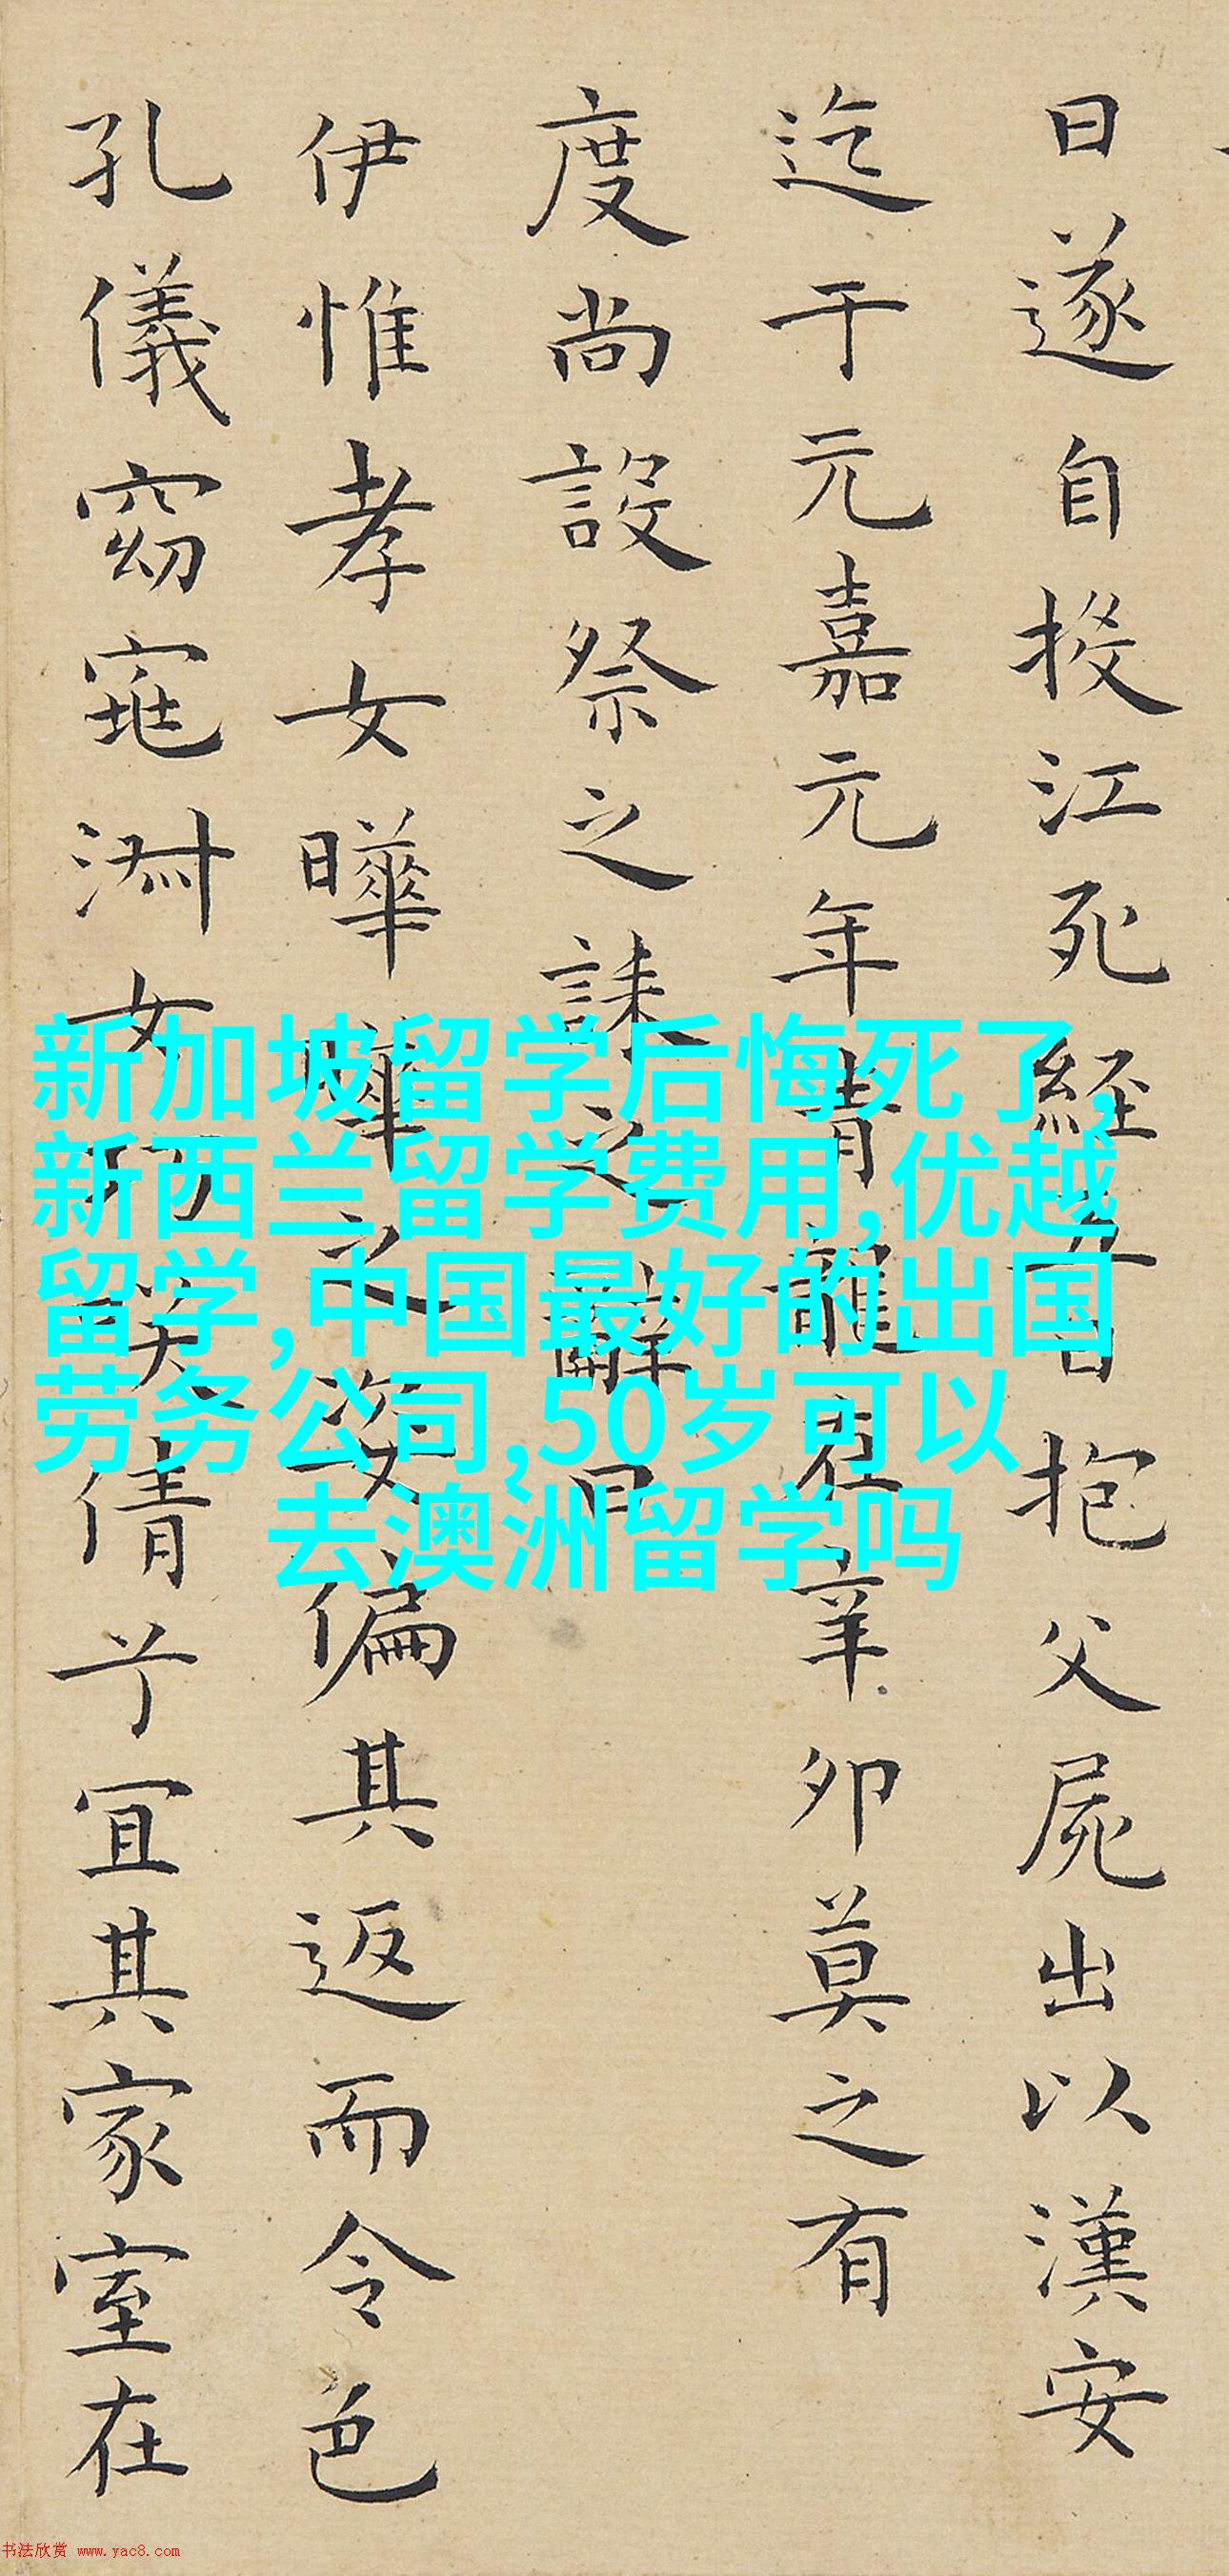 日遂自投江死經五日抱父屍出以漢安
迄于元嘉元年青龍在辛卯莫之有
度尚設祭之誄之辭曰
伊惟孝女曄曄之姿偏其返而令色
孔儀窈窕淑女巧笑倩兮宜其家室在
新加坡留学后悔死了,
新西兰留学费用,优越
留学,中国最好的出国
劳务公司,50岁可以
去澳洲留学吗
书法欣赏 www.yac8.com